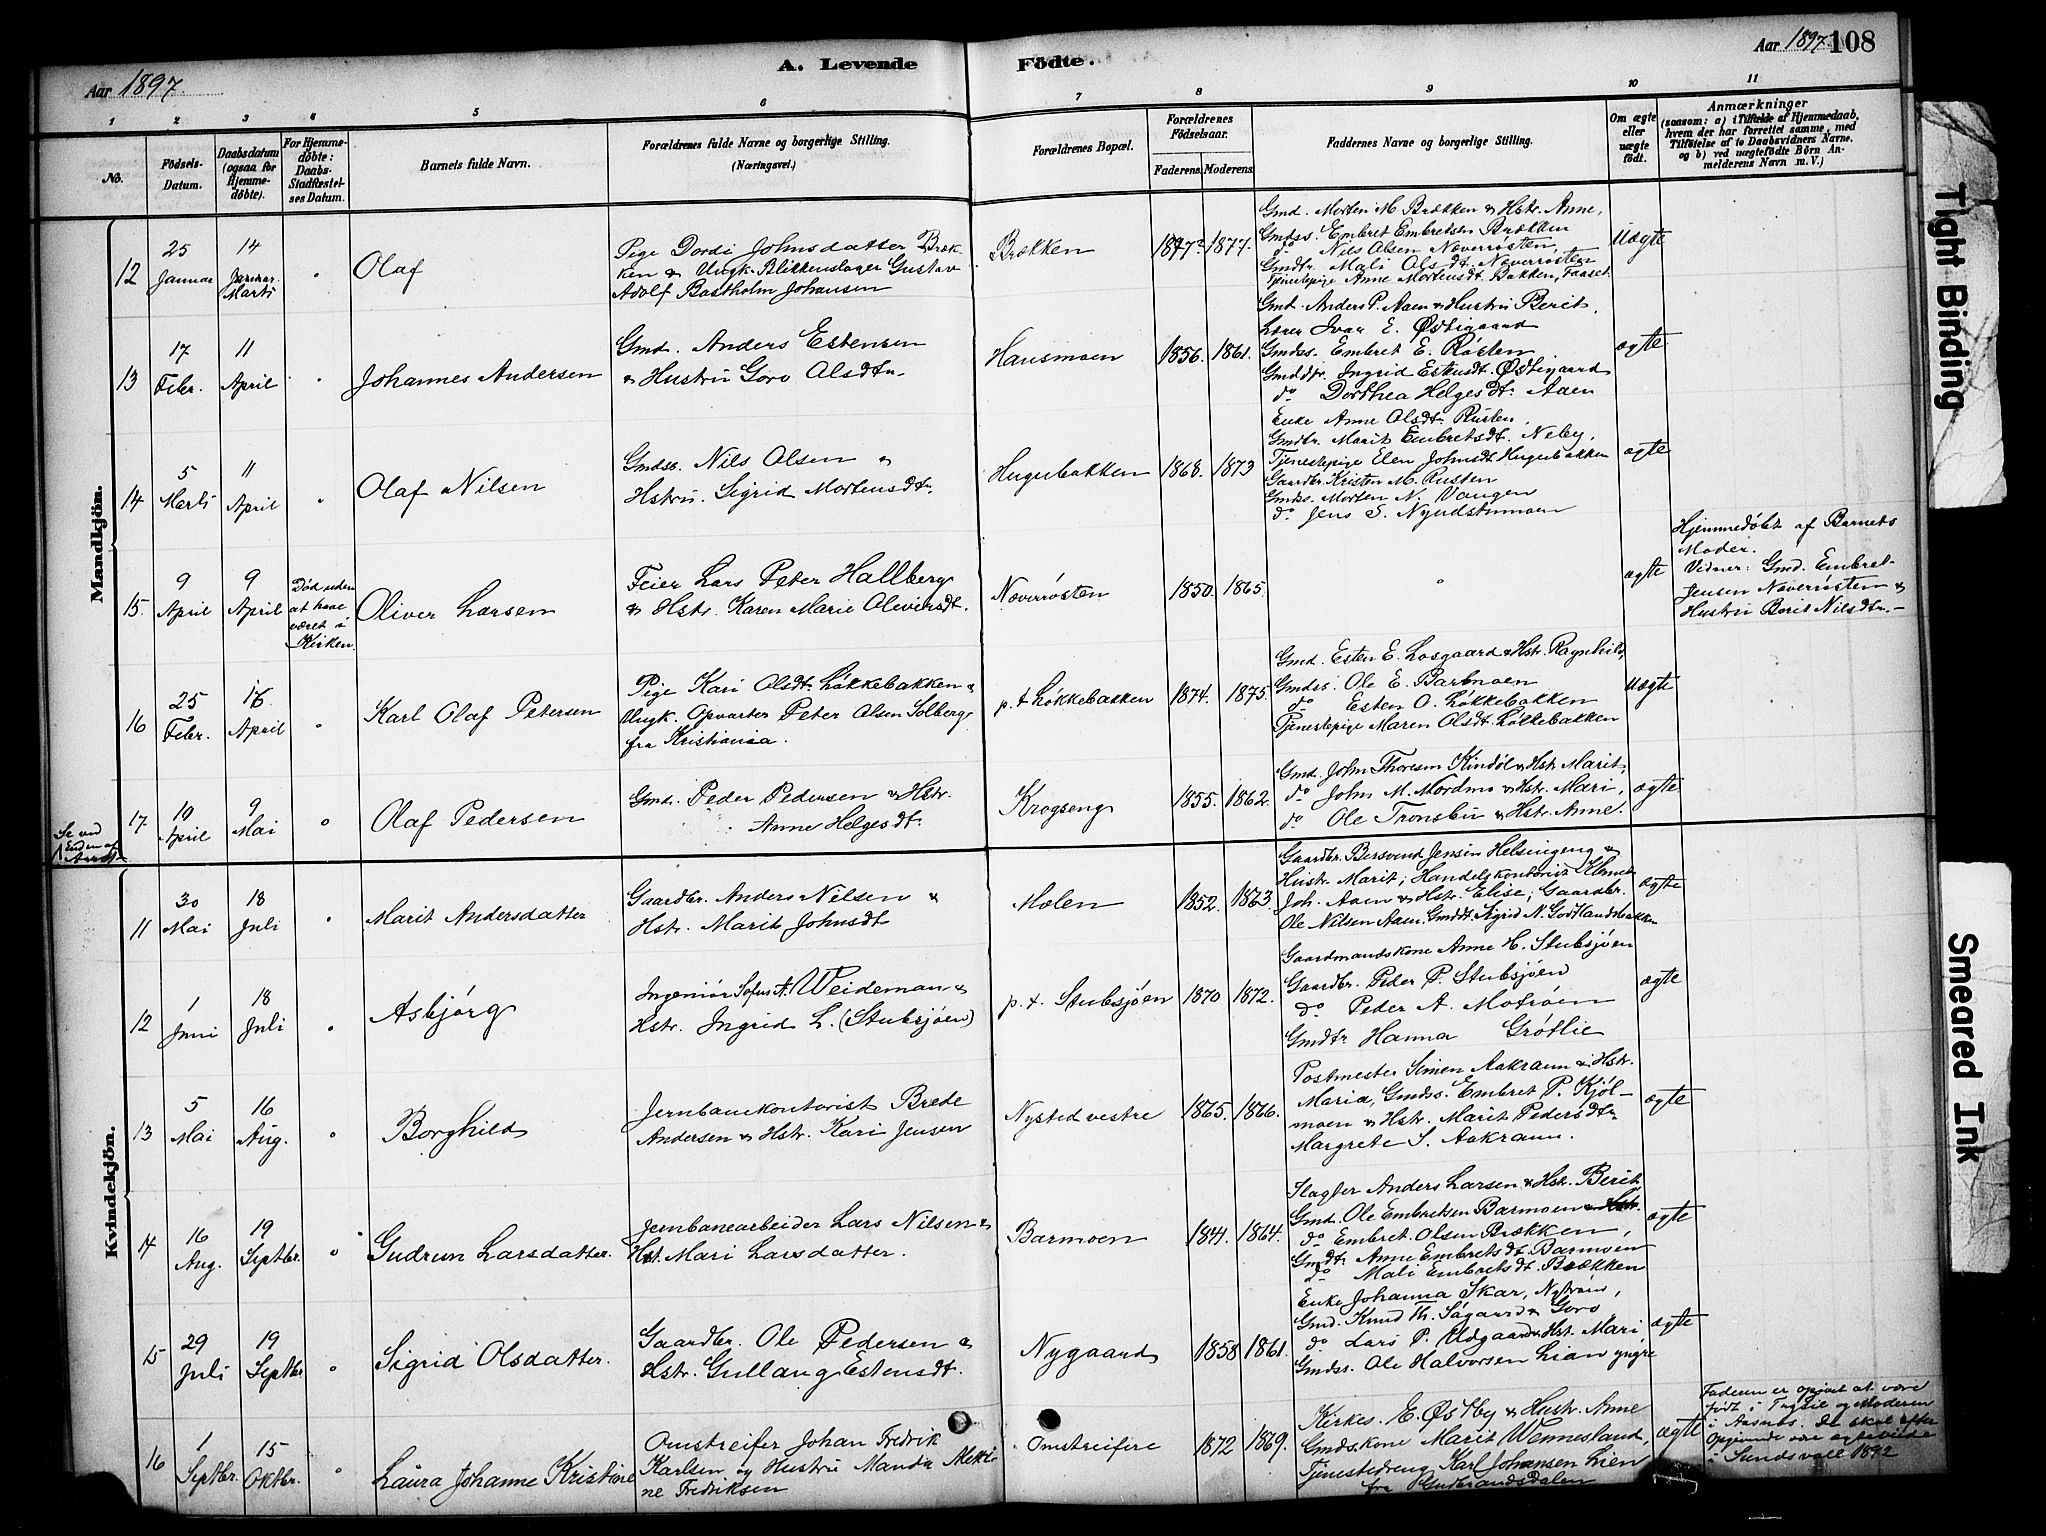 Aar 1897.
A. Levende Födte.
Aar 1897 108
1 2 3 4 5 6 7 8 9 10 11
No.
Födsels-Datum.
Daabsdatum (ogsaa for Hjemmedöbte).
For Hjemmedöbte: Daabs-Stadfæstelses Datum.
Barnets fulde Navn.
Forældrenes fulde Navne og borgerlige Stilling. (Næringsvei.)
Forældrenes Bopæl.
Forældrenes Födselsaar.
Faderens. Moderens.
Faddernes Navne og borgerlige Stilling.
Om ægte eller uægte födt.
Anmærkninger
(saasom: a) i Tilfælde af Hjemmedaab, hvem der har forrettet samme, med Tilföielse af to Daabsvidners Navne, og b) ved uægtefödte Börn Anmelderens Navn m. V.)
Mandkjön.
12
25 Januar
14 Januar. Marts
"
Olaf
Pige Dordi Johnsdatter Bræk-
ken & Ungk. Blikkenslager Gustav
Adolf Bastholm Johansen
Brækken
1877? 1877.
Gmd. Morten M. Brækken & Hstr. Anne,
Gmdss. Embret Embretsen Brækken
do Nils Olsen Nøverrøsten,
Gmdtr. Mali Olsdt. Nøverrøsten
Tjenestepige Anne Mortensdt Bakken, Faaset.
Uægte
13
17 Febr.
11 April
"
Johannes Andersen
Gmd. Anders Estensen
& Hustru Goro Olsdtr.
Hausmoen
1856. 1861.
Gmd. Anders P. Aaen & Hustru Berit.
Lærer Ivar E. Østigaard
Gmdss. Embret E. Røsten.
Gmddtr. Ingrid Eskusdt. Østigaard
do Dorthea Helgesdt. Aaen
ægte
14
5 Marts
11 April
"
Olaf Nilsen
Gmdss. Nils Olsen &
Hstru. Sigrid Mortensdtr.
Hugubakken
1868. 1873
Enke Anne Olsdt. Rusten,
Gmdtr. Marit Embretsdt. Neby,
Tjenestepige Elen Johnsdt Hugubakken
Gaardbr. Kristen M. Rusten
Gmdss. Morten N. Vangen
do Jens S. Nyudstumoen
ægte
15.
9 April
9 April
Død uden
at have
været i
Kirken.
Oliver Larsen
Feier Lars Peter Hallberg
& Hstr. Karen Marie Oliversdt.
Nøverrøsten
1850. 1865.
"
ægte
Hjemmedøbt af Barnets
Moder.
Vidner: Gmd. Embret
Jensen Nøverrøsten &
Hustru Berit Nilsdtr.
16
25 Febr.
16. April
"
Karl Olaf Petersen
Pige Kari Olsdt. Løkkebakken &
Ungk. Opvarter Peter Olsen Solberg
fra Kristiania.
p. t Løkkebakken
1874. 1875.
Gmd. Esten E. Losgaard & Hstr. Ragnhild,
Gmdss. Ole E. Barmoen
do Esten O. Løkkebakken
Tjenestepige Maren Olsdt. Løkkebakken
Uægte
17
10 April
9 Mai
"
Olaf Pedersen
Gmd. Peder Pedersen & Hstr.
Anne Helgesdt.
Krogseng
1855. 1862.
Gmd. John Thoresen Kindøl & Hstr. Marit,
do John M. Mordmo & Hstr. Mari,
do Ole Tronsbu & Hstr. Anne.
ægte
Se ved
Enden af
Aaret
Kvindekjön.
11
30 Mai
18 Juli
"
Marit Andersdatter
Gaardbr. Anders Nilsen &
Hstr. Marit Johnsdt
Molen
1852. 1863.
Gaardbr. Bersvend Jensen Helsingeng &
Hustr. Marit; Handelskontorist
Joh. Aaen & Hstr. Elise; Gaardbr.
Ole Nilsen Aaen. Gmddt. Sigrid N. Godtlandsbakken
ægte
12
1 Juni
18 Juli
"
Asbjørg
Ingeniør Sofus A. Weideman &
Hstr. Ingrid L. (Stubsjøen)
p. t. Stubsjøen
1870 1872.
Gaardmandskone Anne H. Stubsjøen
Gaardbr. Peder P. Stubsjøen
do Peder A. Motrøen
Gmdtr Hanna Grøtlie
ægte
13
5 Mai
16 Aug.
"
Borghild
Jernbanekontorist Brede
Andersen & Hstr. Kari Jensen
Nysted vestre
1865. 1866.
Postmester Simen Aakrann & Hstr.
Maria, Gmdss. Embret P. Kjøl-
moen & Hstr. Marit Pedersdtr
Margrete S. Aakrann.
ægte
14
16 Aug.
19 Septbr.
"
Gudrun Larsdatter.
Jernbanearbeider Lars Nilsen &
Hst. Mari Larsdatter.
Barmoen
1841. 1864.
Slagter Anders Larsen & Hst. Berit
Gmd. Ole Embretsen Barmoen & Hstr.
do Embret Olsen Brækken,
Gmdtr Anne Embretsdt. Barmoen
do Mali Embretsdt. Brækken
ægte
15
29 Juli
19 Septbr
"
Sigrid Olsdatter.
Gaardbr. Ole Pedersen &
Hstr. Gullaug Estensdt.
Nygaard
1858 1861.
Enke Johanna Skar, Nytrøen,
Gmd. Knud Th. Søgaard & Goro
do Lars P. Udgaard & Hst. Mari
Gmdss. Ole Halvorsen Lian yngre
ægte
16
1 Septbr.
15 Oktbr.
"
Laura Johanne Kristine
Omstreifer Johan Fredrik
Karlsen og Hustru Manda Mekki-
ne Fredriksen
Omstreifere
1872 1869.
Kirkes. E. Østby & Hustr. Anne
Gmdskone Marit Wennesland,
Tjenestedreng Karl Johansen Lien
fra Gudbrandsdalen
ægte
Faderen er opgivet at være
født i Trysil og Moderen
i Aasnes. De skal efter
Opgivende være ægteviede
i Sundsvall 1892
Tight Binding
Smeared Ink